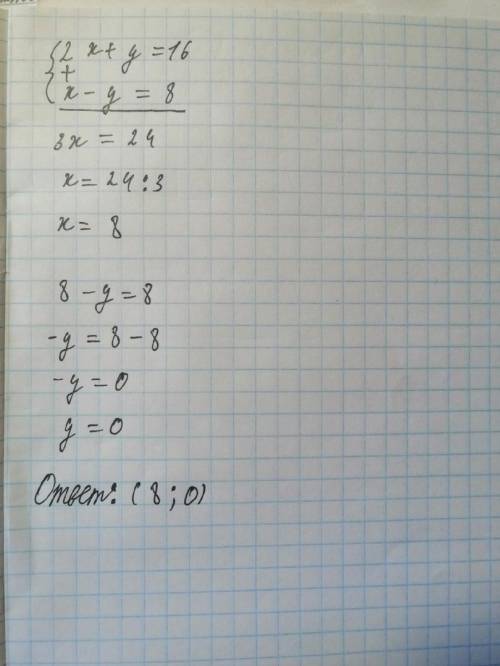 {2x + y = 16
+
x - y = 8
3x = 24
x = 24 : 3
x = 8
8 - y = 8
-y = 8 - 8
-y = 0
y = 0
Ответ: (8; 0)